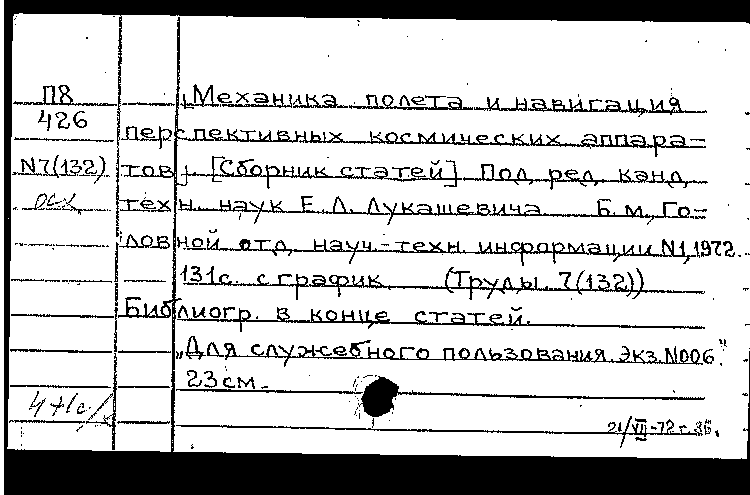 П8
„Механика полета и навигация
426
перспективных космических аппара-
N7(132)
тов". [Сборник статей] Под ред. канд.
техн. наук Е. Л. Лукашевича Б.м., Го-
ловной отд. науч.-техн. информации N1, 1972.
131с. с график. (Труды. 7(132))
Библиогр. в конце статей.
„Для служебного пользования. Экз. N006."
23 см.
21/VII-72 г.